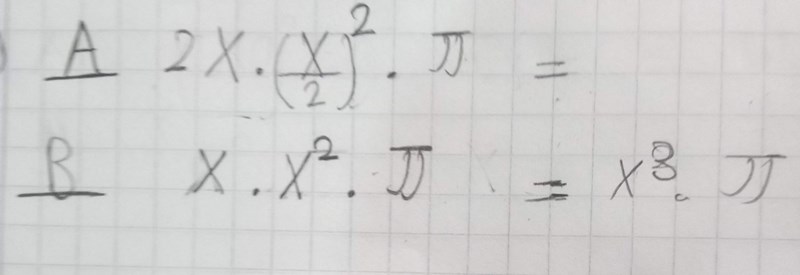 A 2X · (X/2)² · π =
B X · X² · π = X³ · π